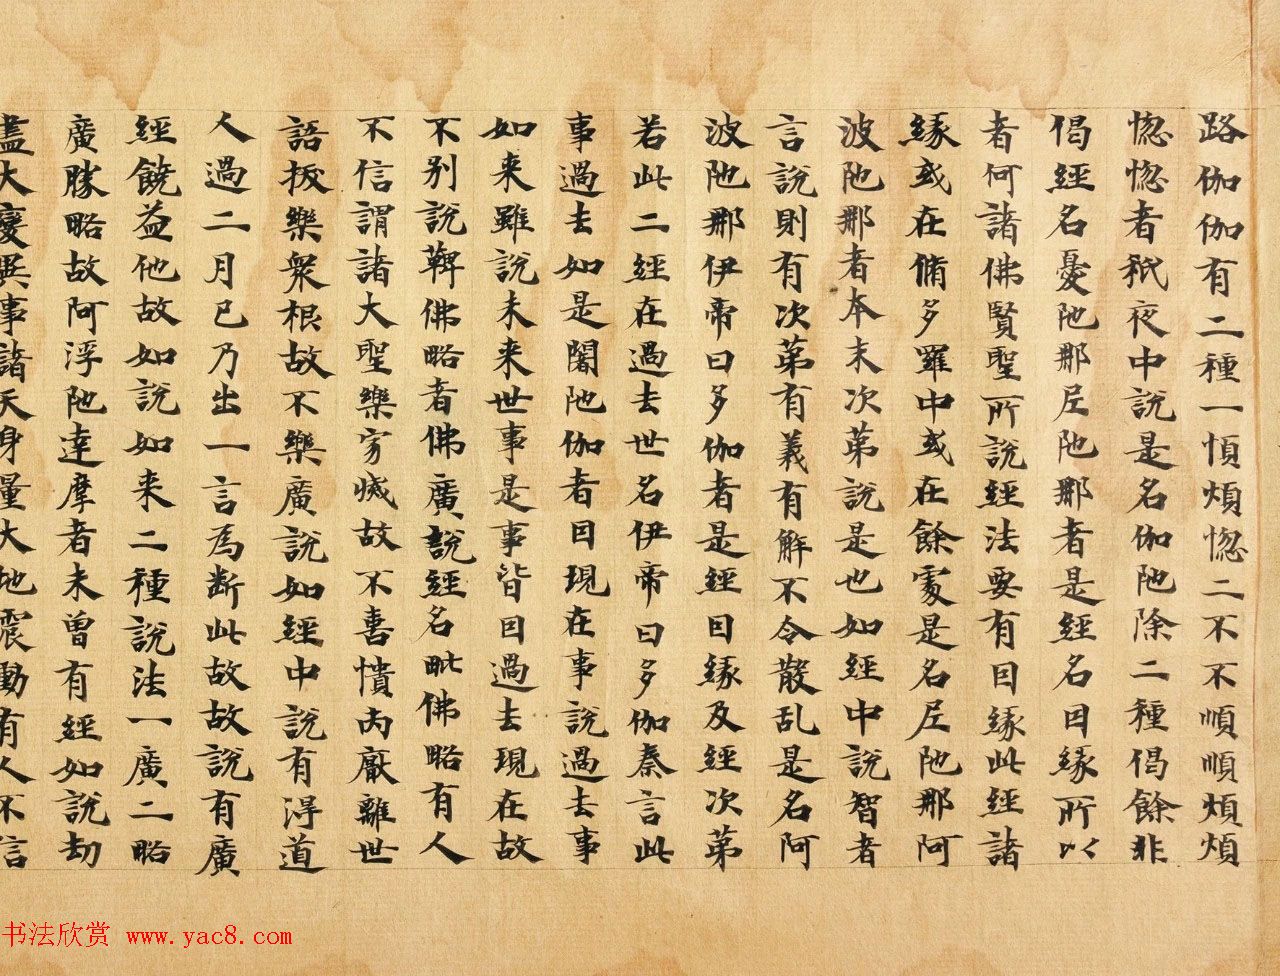 路伽伽有二種一順煩惚二不不順順煩煩
惚惚者秖夜中說是名伽陁除二種偈餘非
偈經名憂陁那尼陁那者是經名因緣所以
者何諸佛賢聖所說經法要有因緣此經諸
緣或在脩多羅中或在餘處是名尼陁那阿
波陁那者本末次第說是也如經中說智者
言說則有次第有義有解不令散乱是名阿
波陁那伊帝曰多伽者是經因緣及經次第
若此二經在過去世名伊帝曰多伽秦言此
事過去如是闍陁伽者因現在事說過去事
如来雖說未来世事是事皆因過去現在故
不别說鞞佛略者佛廣說經名毗佛略有人
不信謂諸大聖樂寂滅故不憙憒丙厭離世
語拔樂衆根故不樂廣說如經中說有淂道
人過二月已乃出一言為断此故故說有廣
經饒益他故如說如来二種說法一廣二略
廣勝略故阿浮陁達摩者未曽有經如說劫
盡大變異事諸天身量大地震動有人不信
书法欣赏 www.yac8.com